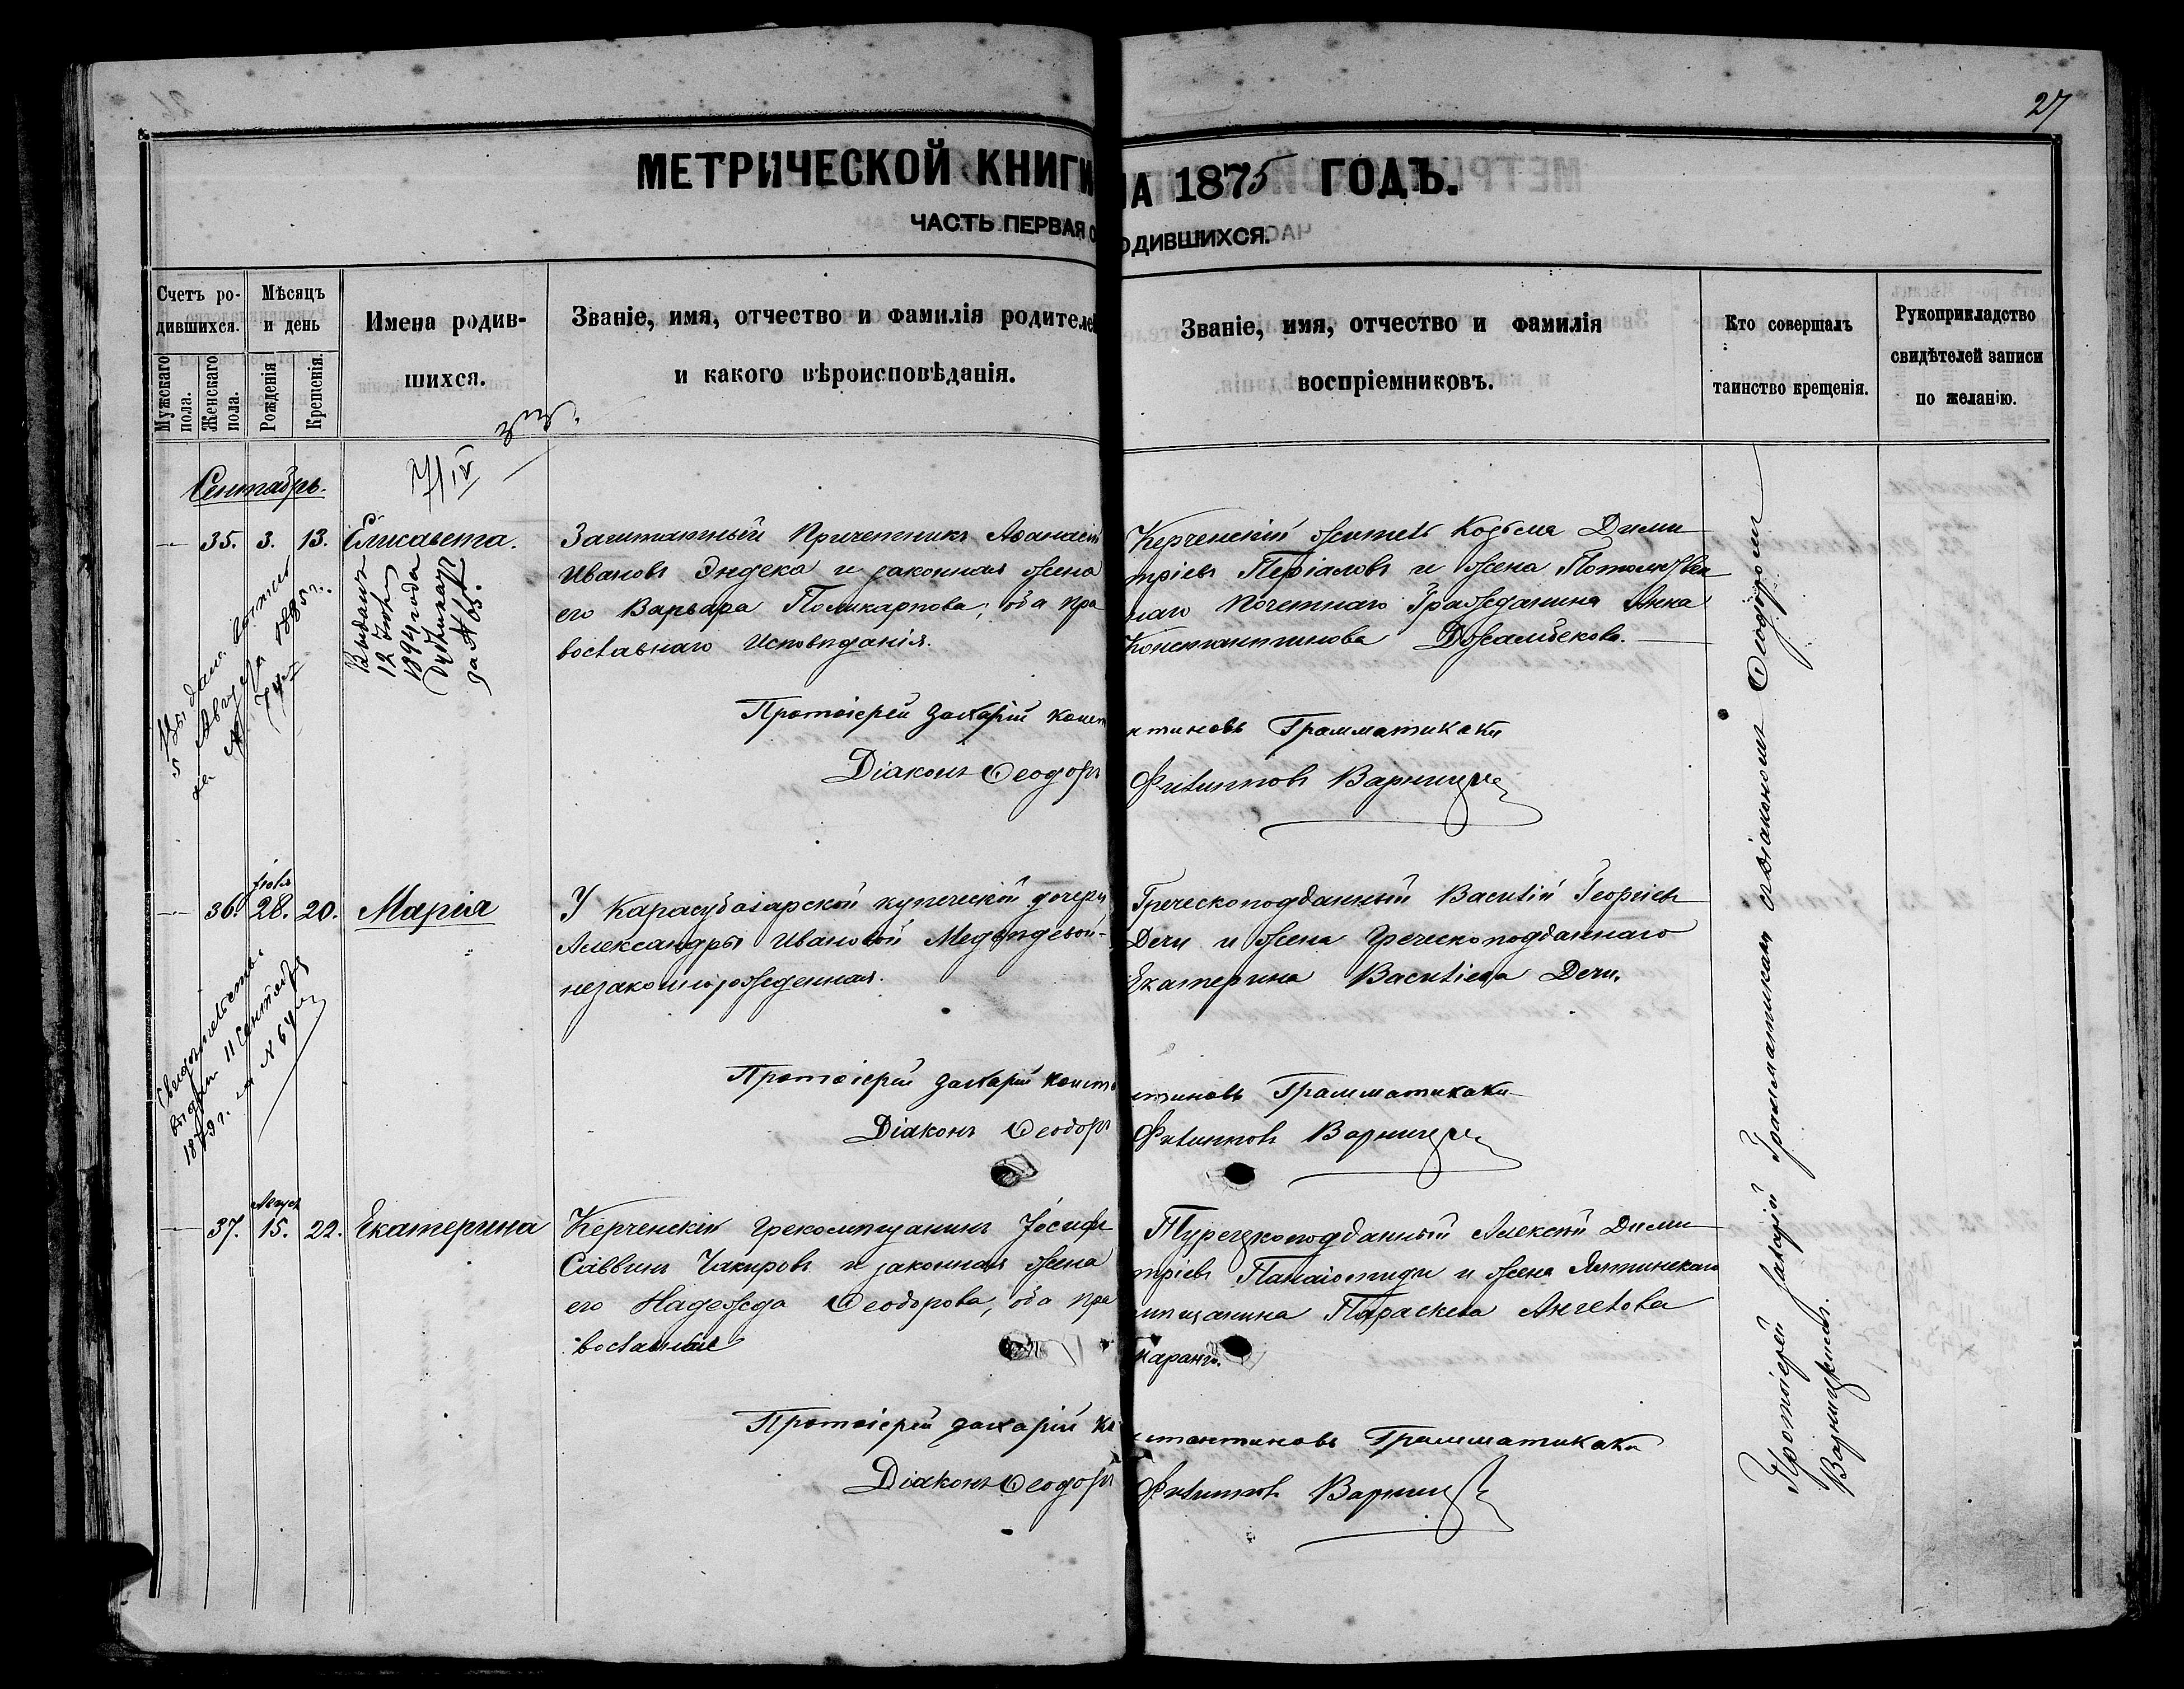 27
МЕТРИЧЕСКОЙ КНИГИ НА 1875 ГОДЪ.
ЧАСТЬ ПЕРВАЯ О РОДИВШИХСЯ.
Счетъ родившихся.
Мужскаго пола.
Женскаго пола.
Мѣсяцъ и день
Рожденія
Крещенія.
Имена родив-
шихся.
Званіе, имя, отчество и фамилія родителей
и какого вѣроисповѣданія.
Званіе, имя, отчество и фамилія
воспріемниковъ.
Кто совершалъ
таинство крещенія.
Рукоприкладство
свидѣтелей записи
по желанію.
7/IV
Сентябрь.
35. 3. 13. Елисавета.
Заштатный Причетникъ Аѳанасій
Ивановъ Эндека и законная жена
его Варвара Поликарпова, оба пра
вославнаго Исповѣданія.
Керченскій житель Козьма Дими
тріевъ Періаловъ и жена Потомствен
наго почетнаго Гражданина Анна
Константинова Джамбекова.
Выданъ
12 Іюня
1894 года
Дубликатъ
за № 65.
Выдана
5 Августа 1885 г.
за № 74
Протоіерей Захарій Константиновъ Грамматикаки
Діаконъ Ѳеодоръ Филипповъ Варницк
36. Іюля 28. 20. Марія
У Карасубазарской купеческой дочери
Александры Ивановой Медвѣдевой-
незаконнорожденная.
Греческоподданный Василій Георгіевъ
Дечи и жена Греческоподданнаго
Екатерина Васильева Дечи.
Свидѣтельство
выдан 11 Сентября
1879 г. № 64
Протоіерей Захарій Константиновъ Грамматикаки
Діаконъ Ѳеодоръ Филипповъ Варницк
37. Август 15. 22. Екатерина
Керченскій Грекомѣщанинъ Іосифъ
Саввинъ Чакировъ и законная жена
его Надежда Ѳеодорова, оба пра
вославные
Турецкоподданный Алексѣй Дими
тріевъ Панаіотиди и жена Ялтинскаго
мѣщанина Параскева Ангелова
Протоіерей Захарій Константиновъ Грамматикаки
Діаконъ Ѳеодоръ Филипповъ Варницк
Протоіерей Захарій Грамматикаки съ діакономъ Ѳеодоромъ
Варницкимъ.